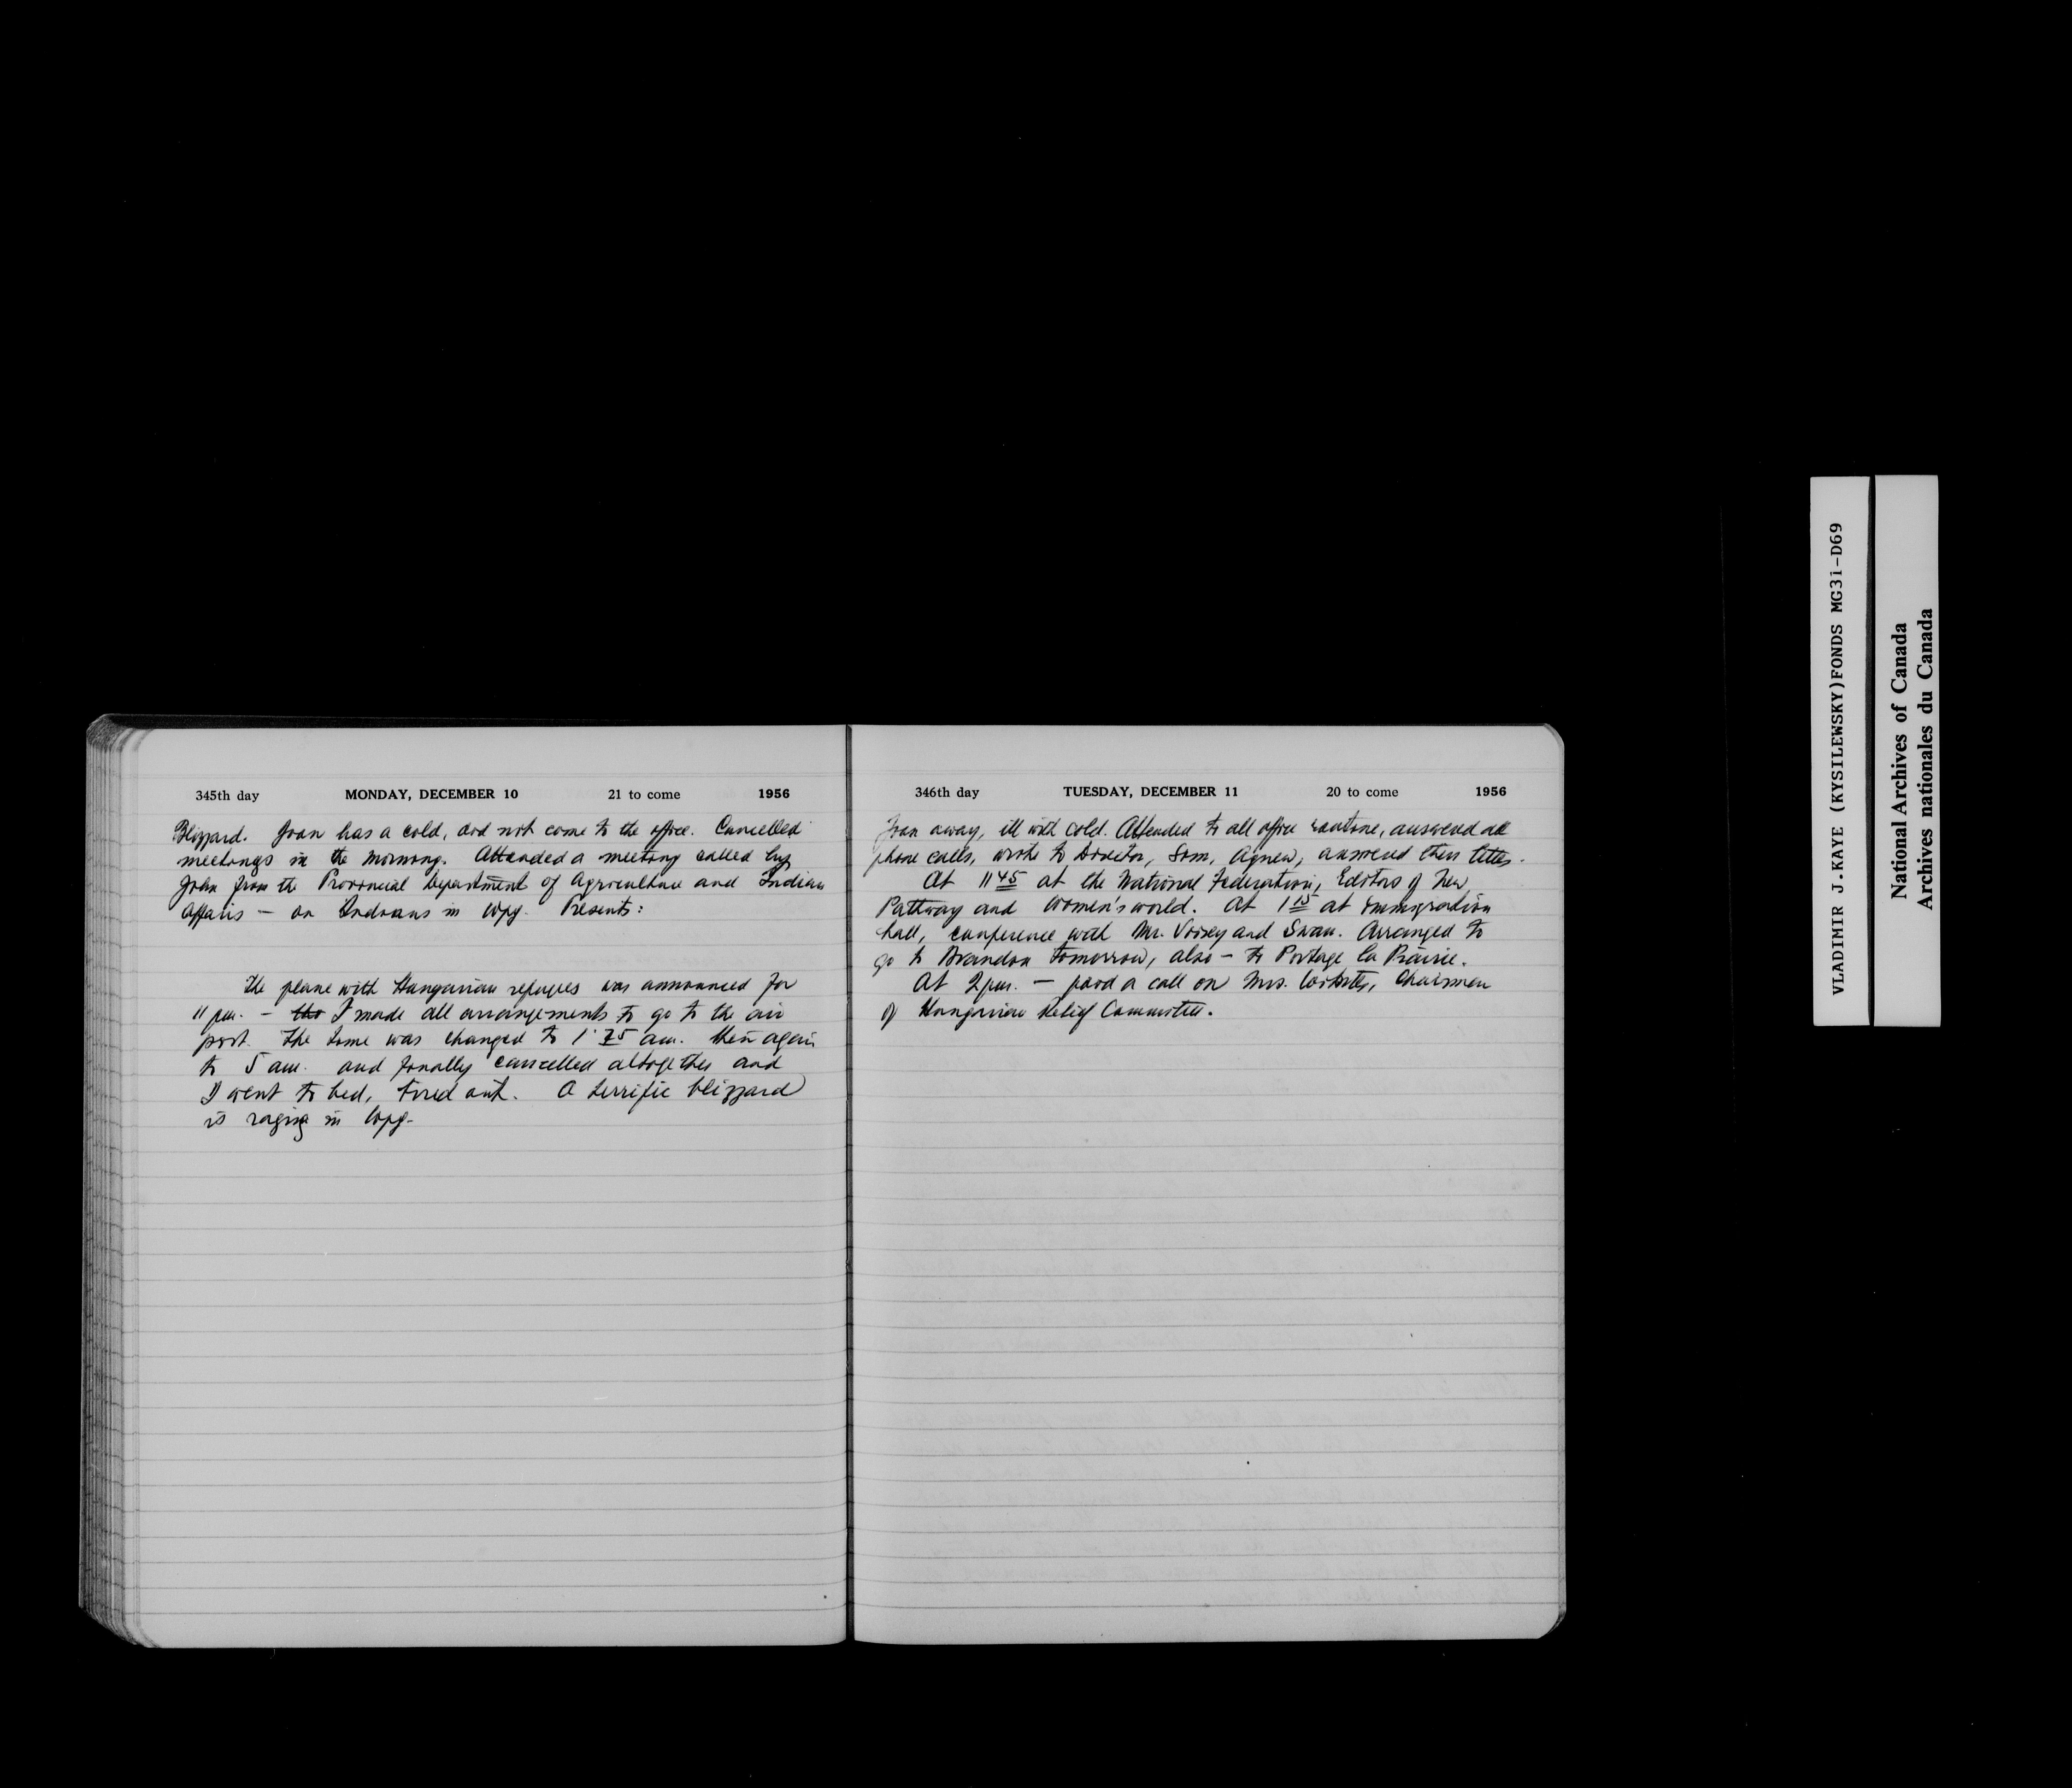 345th day MONDAY, DECEMBER 10 21 to come 1956
Blizzard. Joan has a cold, did not come to the office. Cancelled
meetings in the morning. Attended a meeting called by
John from the Provincial Department of Agriculture and Indian
Affairs — on Indians in Wpg. Presents:
The plane with Hungarian refugees was announced for
11 pm. — the I made all arrangements to go to the air
port. The time was changed to 1 am. then again
to 5 am. and finally cancelled altogether and
I went to bed, tired out. A terrific blizzard
is raging in Wpg.
346th day TUESDAY, DECEMBER 11 20 to come 1956
Joan away, ill with cold. Attended to all office routine, answered all
phone calls, wrote to Director, Sim, Agnew, answered their letters.
At 11 45 at the National Federation, Editors of New
Pathway and Women's World. At 1 15 at Immigration
hall, conference with Mr. and Swan. Arranged to
go to Brandon tomorrow, also — to Portage la Prairie.
At 2 pm. — paid a call on Mrs. Chairman
of Hungarian Relief Committee.
VLADIMIR J.KAYE (KYSILEWSKY)FONDS MG31-D69
National Archives of Canada
Archives nationales du Canada